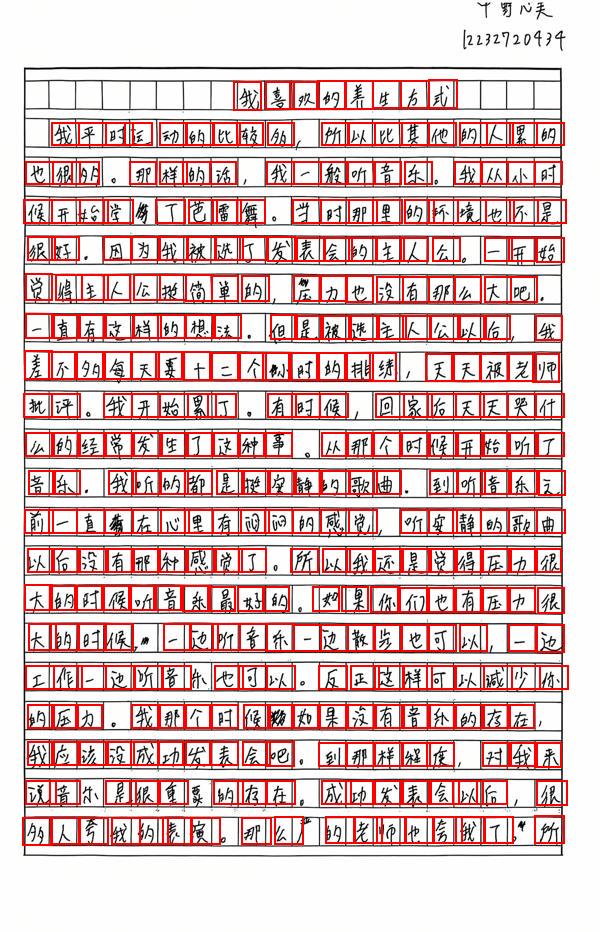 中野心美
12232720434
我喜欢的养生方式
我平时运动的比较多，所以比其他的人累的
也很多。那样的话，我一般听音乐。我从小时
候开始学了芭雷舞。当时那里的环境也不是
很好。因为我被选了发表会的主人公。一开始
觉得主人公挺简单的，压力也没有那么大吧。
一直有这样的想法。但是被选主人公以后，我
差不多每天要十二个小时的排练，天天被老师
批评。我开始累了。有时候，回家后天天哭什
么的经常发生了这种事。从那个时候开始听了
音乐。我听的都是挺安静的歌曲。到听音乐之
前一直在心里有闷闷的感觉，听安静的歌曲
以后没有那种感觉了。所以我还是觉得压力很
大的时候听音乐最好的。如果你们也有压力很
大的时候，一边听音乐一边散步也可以，一边
工作一边听音乐也可以。反正这样可以减少你
的压力。我那个时候如果没有音乐的存在，
我应该没成功发表会吧。到那样程度，对我来
说音乐是很重要的存在。成功发表会以后，很
多人夸我的表演。那么严的老师也夸我了。所